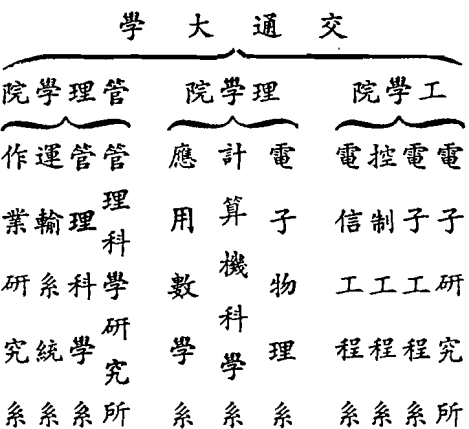 交通大學
工學院
電子研究所
電子工程系
控制工程系
電信工程系
理學院
電子物理系
計算機科學系
應用數學系
管理學院
管理科學研究所
管理科學系
運輸系統系
作業研究系